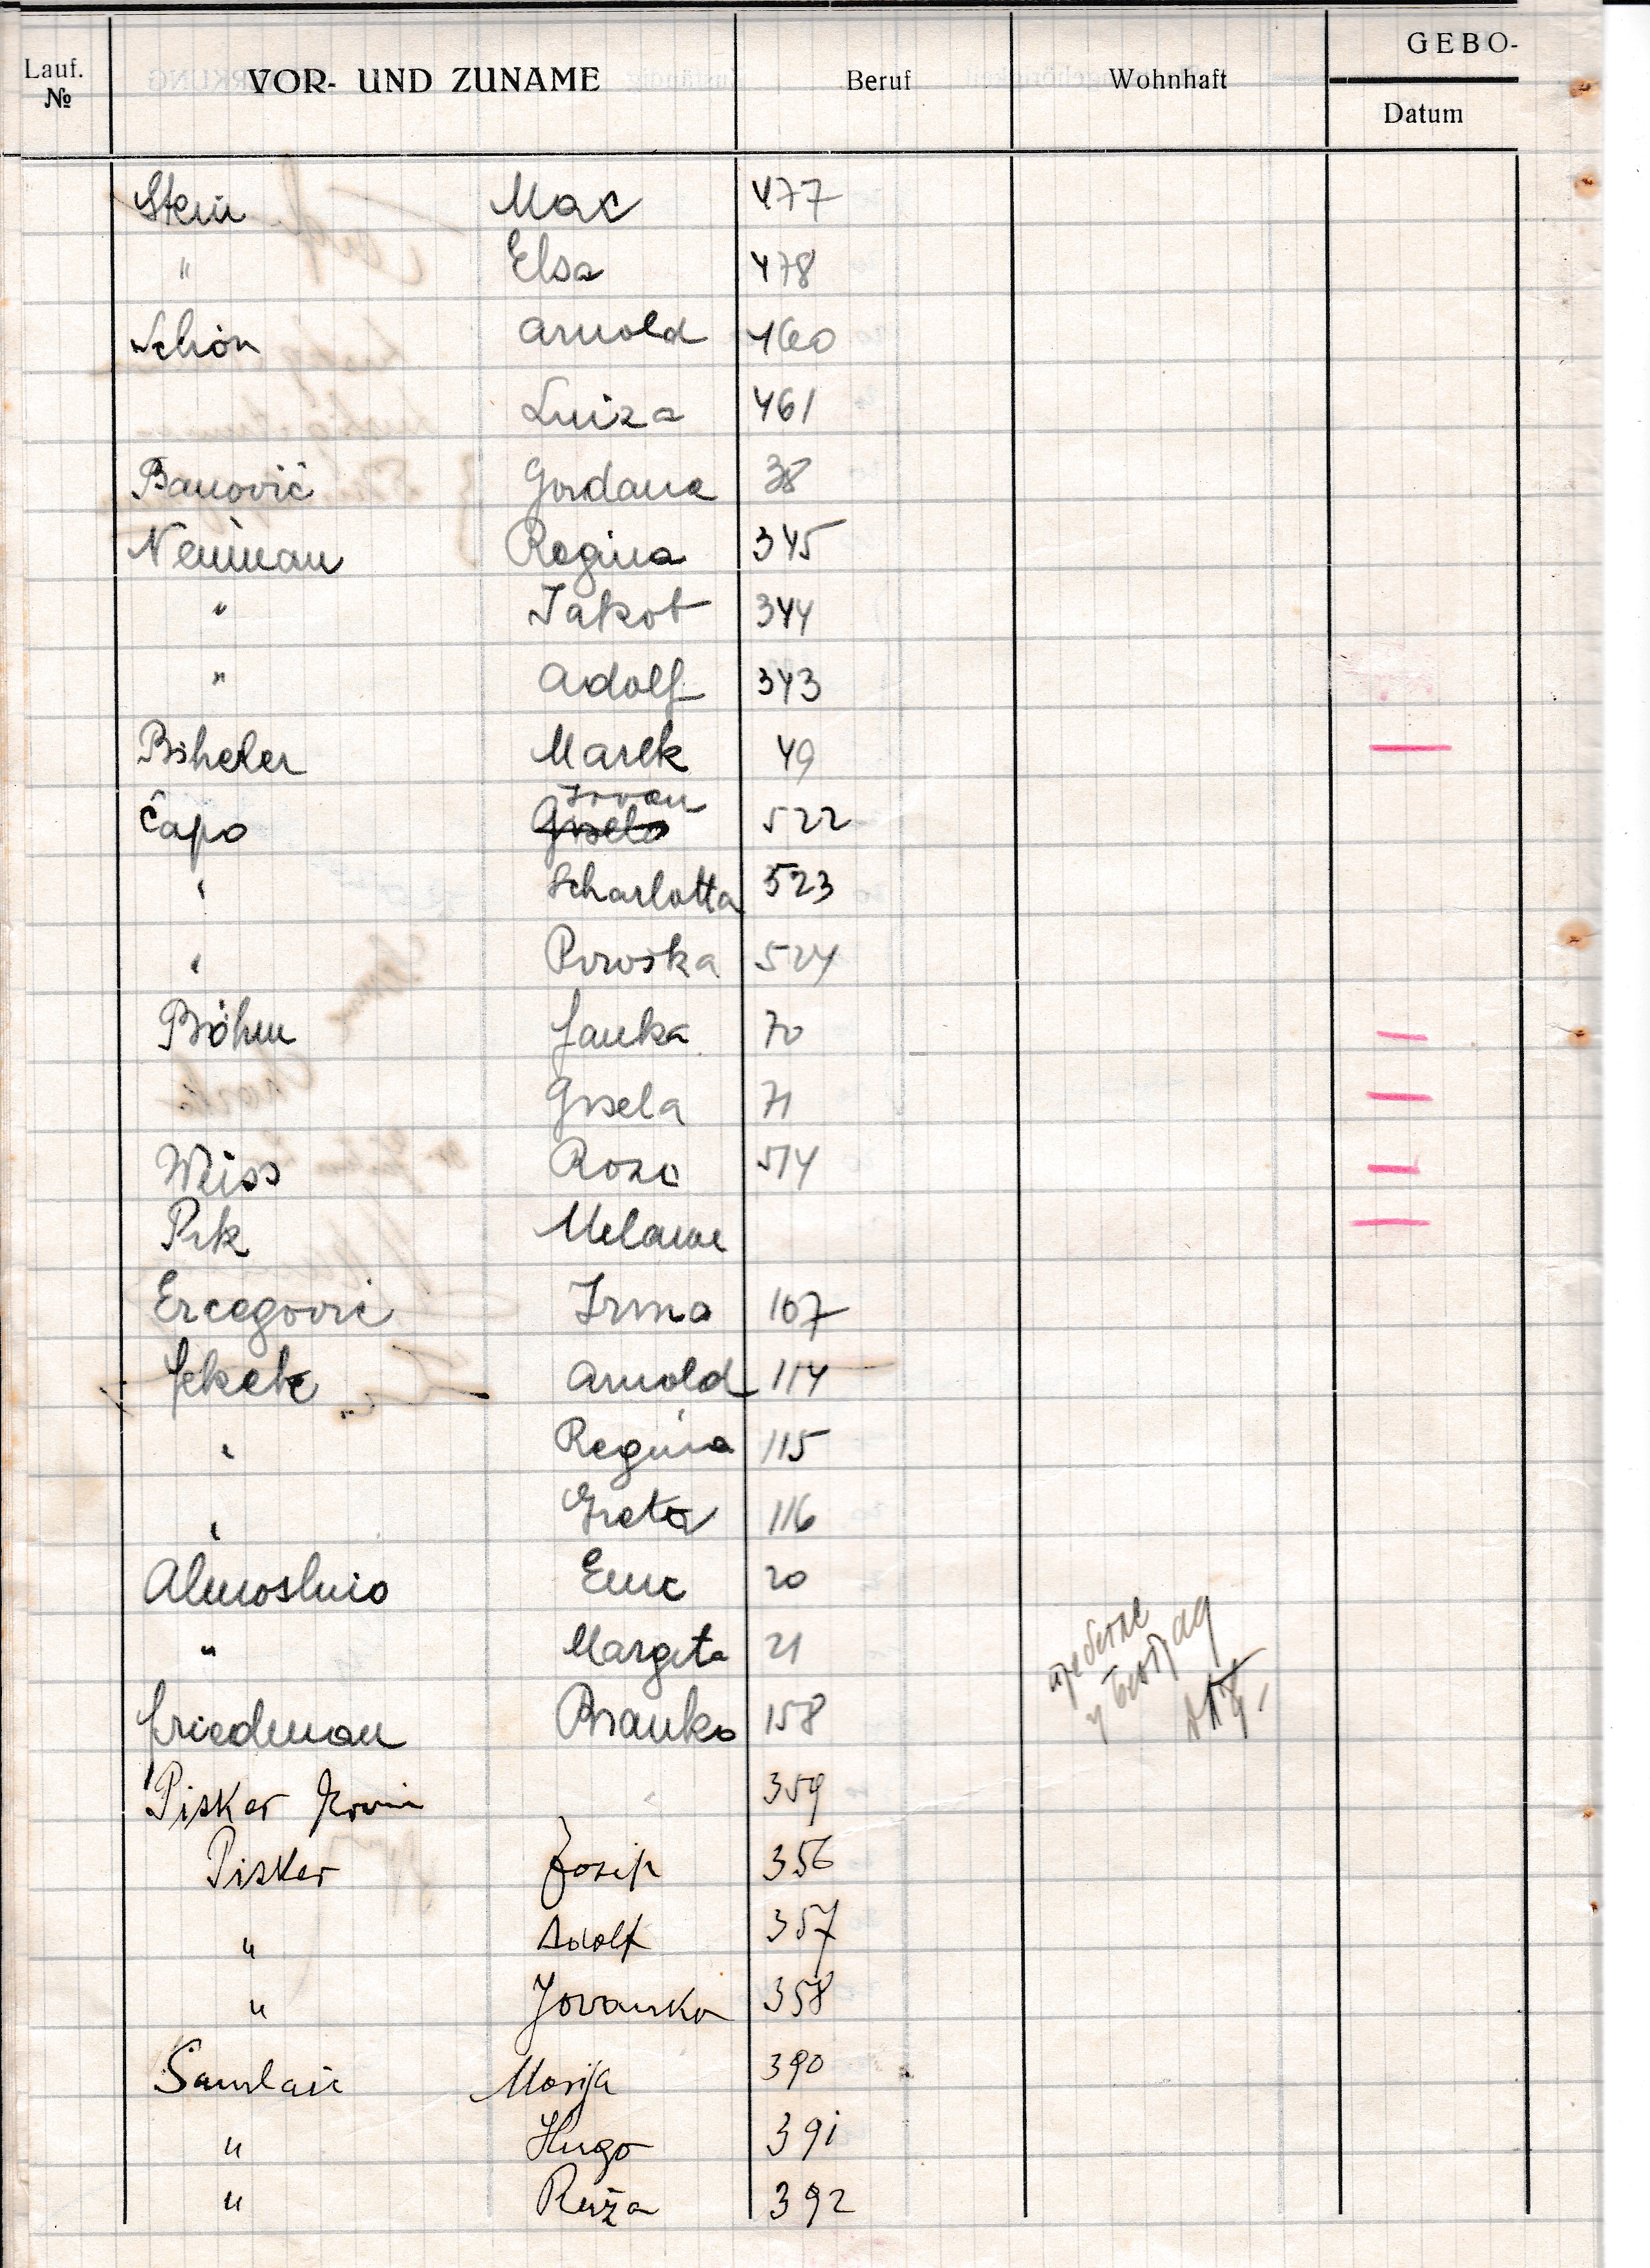 GEBO-
Lauf. № VOR- UND ZUNAME Beruf Wohnhaft Datum
Stein Mac 477
" Elsa 478
Schön Arnold 460
Luiza 461
Banović Gordana 38
Neuman Regina 345
" Jakob 344
" Adolf 343
Biheler Marek 49
Irvan
Čapo Gisela 522
" Scharlotta 523
" Piroska 524
Böhm Janka 70
Gisela 71
Weiss Roza 514
Pik Melanie
Ercegović Irma 107
Fekete Arnold 114
" Regina 115
" Greta 116
Almoslino Emic 20
" Margita 21
Friedman Branko 158
Pisker Ervin 359
Pisker Josip 356
" Adolf 357
" Jovanka 358
Samlaić Marija 390
" Hugo 391
" Ruža 392